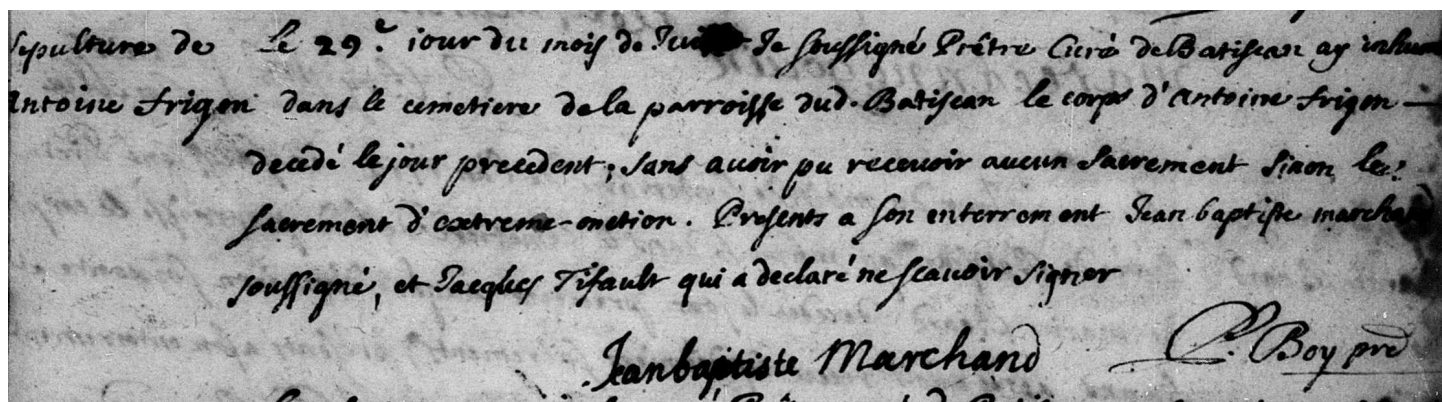 sepulture de Le 29e. iour du mois de Je soussigné Prêtre Curé de Batiscan ay inhumé
antoine frigon dans le cemetiere de la parroisse dud. Batiscan le corps d'antoine frigon
decedé le jour precedent; sans avoir pu recevoir aucun sacrement sinon le
sacrement d'extreme-onction. Presents a son enterrement Jean baptiste marchand
soussigné, et Jacques Tifault qui a declaré ne scavoir signer
Jean baptiste Marchand P. Boy pre